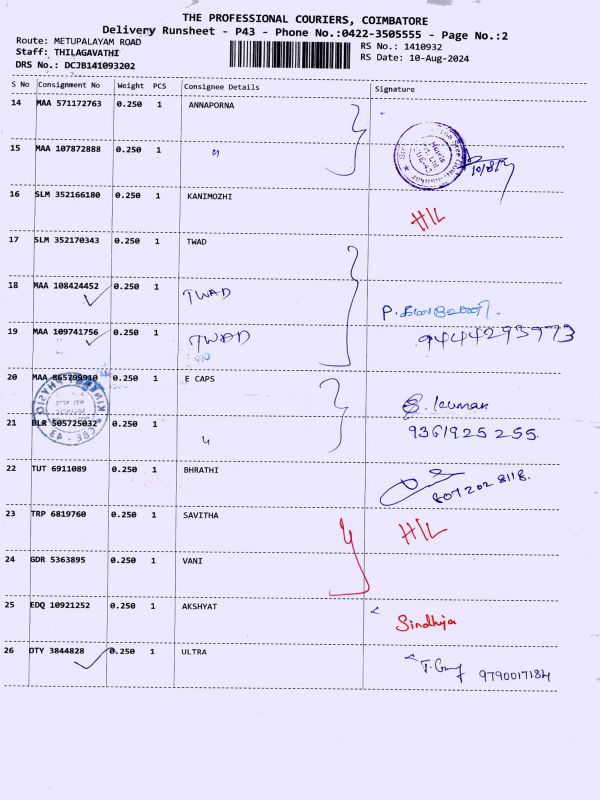 THE PROFESSIONAL COURIERS, COIMBATORE
Delivery Runsheet - P43 - Phone No.:0422-3505555 - Page No.:2
Route: METUPALAYAM ROAD
Staff: THILAGAVATHI
DRS No.: DCJB141093202
RS No.: 1410932
RS Date: 10-Aug-2024
S No Consignment No Weight PCS Consignee Details Signature
14 MAA 571172763 0.250 1 ANNAPORNA
15 MAA 107872888 0.250 1 "
10/8/
16 SLM 352166180 0.250 1 KANIMOZHI H/L
17 SLM 352170343 0.250 1 TWAD
18 MAA 108424452 0.250 1 TWAD
P. கலைவாணி.
19 MAA 109741756 0.250 1 TWAD 9444293773
20 MAA 865799910 0.250 1 E CAPS
S. kumar
21 BLR 505725032 0.250 1 "
9361925255.
22 TUT 6911089 0.250 1 BHRATHI 8072028118.
23 TRP 6819760 0.250 1 SAVITHA H/L
24 GDR 5363895 0.250 1 VANI
25 EDQ 10921252 0.250 1 AKSHYAT Sindhja
26 DTY 3844828 0.250 1 ULTRA 9790017184